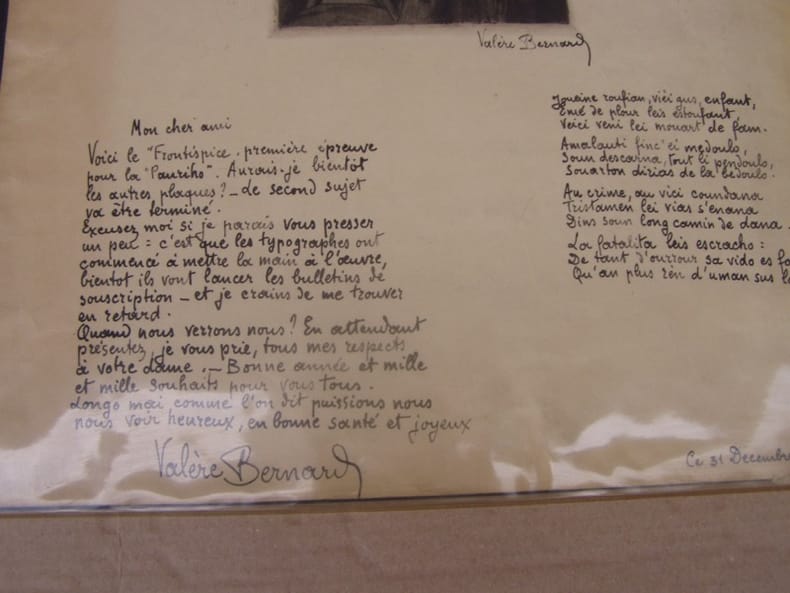 Valère Bernard
Mon cher ami
Voici le "Frontispice. première épreuve
pour la "Pauriho". Aurais-je bientôt
les autres plaques? — de second sujet
va être terminé.
Excusez moi si je parais vous presser
un peu = c'est que les typographes ont
commencé à mettre la main à l'œuvre,
bientot ils vont lancer les bulletins de
souscription — et je crains de me trouver
en retard.
Quand nous verrons nous? En attendant
présentez, je vous prie, tous mes respects
à votre dame. — Bonne année et mille
et mille souhaits pour vous tous.
Longo mai comme l'on dit puissions nous
nous voir heureux, en bonne santé et joyeux
Valère Bernard
Jouine roufian, vièi gus, enfant,
Emé de plour leis estoufant,
Veici veni lei mouart de fam.
Amalauti finc' ei medoulo,
Soun descarna, tout li pendoulo,
Souarton dirias de la bedoulo.
Au crime, au vici coundana
Tristamen lei vias s'enana
Dins soun long camin de dana.
La fatalita leis escracho:
De tant d'ourrour sa vido es
Qu'an plus rèn d'uman sus
Ce 31 Decembre